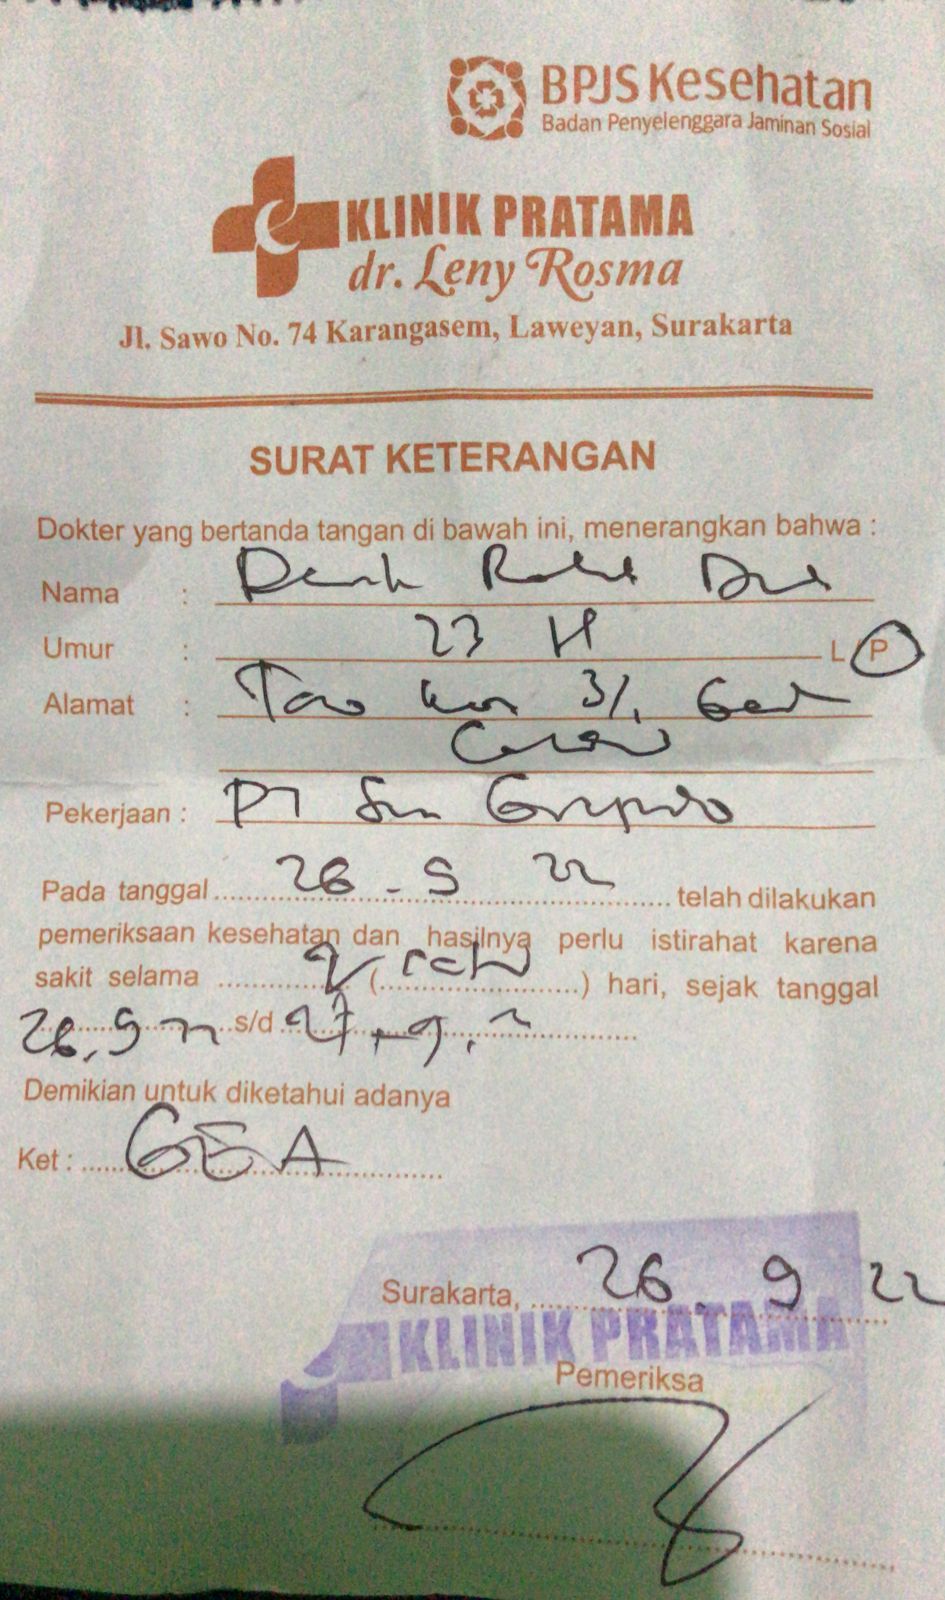 BPJS Kesehatan
Badan Penyelenggara Jaminan Sosial
KLINIK PRATAMA
dr. Leny Rosma
Jl. Sawo No. 74 Karangasem, Laweyan, Surakarta
SURAT KETERANGAN
Dokter yang bertanda tangan di bawah ini, menerangkan bahwa :
Nama :
Umur : 23 H L P
Alamat :
Pekerjaan : PT
Pada tanggal 26 - 9 22 telah dilakukan
pemeriksaan kesehatan dan hasilnya perlu istirahat karena
sakit selama ( ) hari, sejak tanggal
26.9 22 s/d 27.9.
Demikian untuk diketahui adanya
Ket : GEA
Surakarta, 26 9 22
KLINIK PRATAMA
Pemeriksa